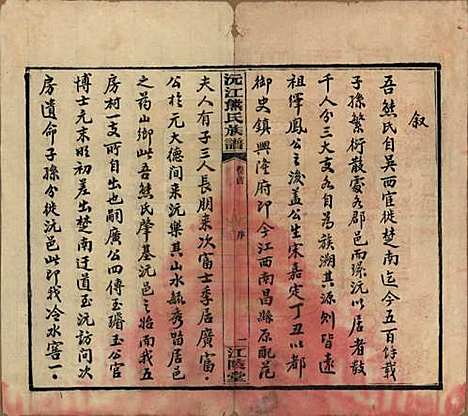 叙
吾熊氏自吴西官徙楚南迄今五百餘載
子孫繁衍散處各郡邑而環沅以居者数
千人分三大支各自為族溯其源則皆遠
祖繹鳳公之後蓋公生宋嘉定丁丑以都
御史鎮興隆府即今江西南昌縣原配范
沅江熊氏族譜
卷首
序
一
江陵堂
夫人有子三人長朋来次富士季居廣富
公於元大德間来沅樂其山水毓秀留居邑
之药山鄉此吾熊氏肇基沅邑之始南我五
房村一支所自出也嗣廣公四傳玉璿玉公官
博士元末明初差出楚南迂道至沅訪問次
房遺命子孫分徙沅邑此即我冷水窖一